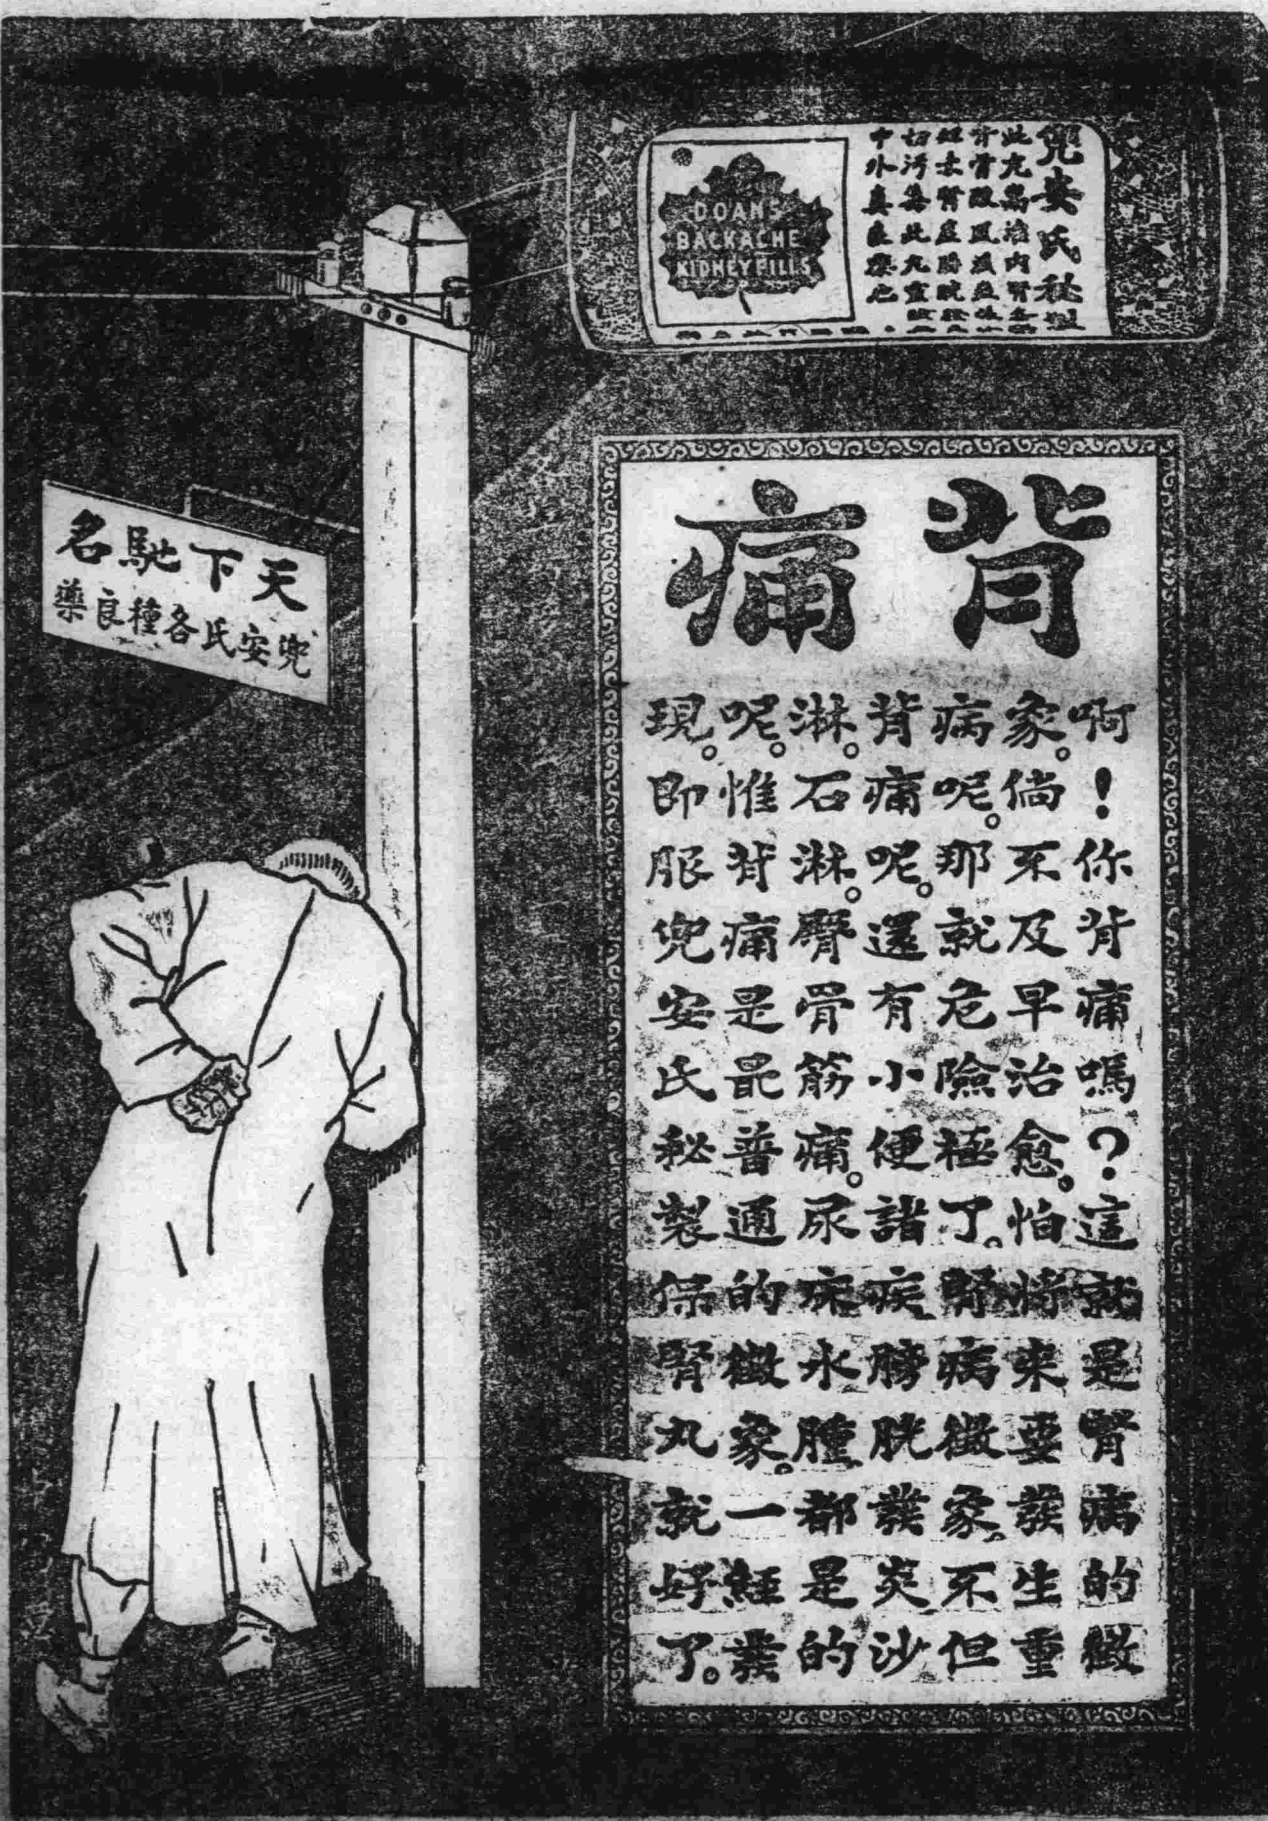 兜安氏秘製
此丸專治內腎各
中外真良藥也
DOANS
BACKACHE
KIDNEY PILLS
天下馳名
兜安氏各種良藥
背痛
啊！你背痛嗎？這就是腎病的徵
象。倘不及早治愈。怕將来要發生重
病呢。那就危險極了。腎病徵象。不但
背痛呢。還有小便諸疾。膀胱發炎沙
淋。石淋。臀骨筋痛。尿床水腫。都是的
呢。惟背痛是最普通的徵象。一經發
現。即服兜安氏秘製保腎丸就好了。